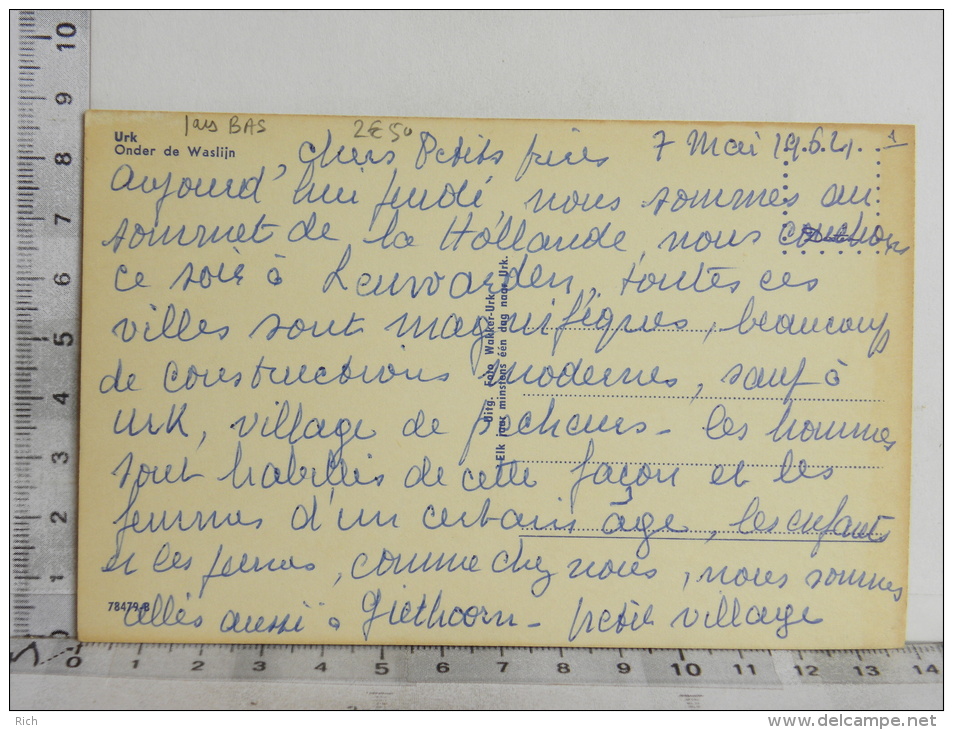 Pays BAS 2€50
Urk
Onder de Waslijn
Chers Petits 7 Mai 1 
Aujourd'hui jeudi, nous sommes au
sommet de la Hollande nous couchons
ce soir à Leuwarden, toutes ces
villes sont magnifiques, beaucoup
de constructions modernes, sauf à
Urk, village de pêcheurs - les hommes
sont habillés de cette façon et les
femmes d'un certain âge, les enfants
et les jeunes, comme chez nous, nous sommes
allés aussi à Giethoorn - petit village
78479-B
Uitg. Foto Wakker-Urk.
Elk jaar minstens één dag naar Urk.
0 1 2 3 4 5 6 7 8 9 10
0 1 2 3 4 5 6 7 8 9 10 11 12 13 14
Rich
www.delcampe.net